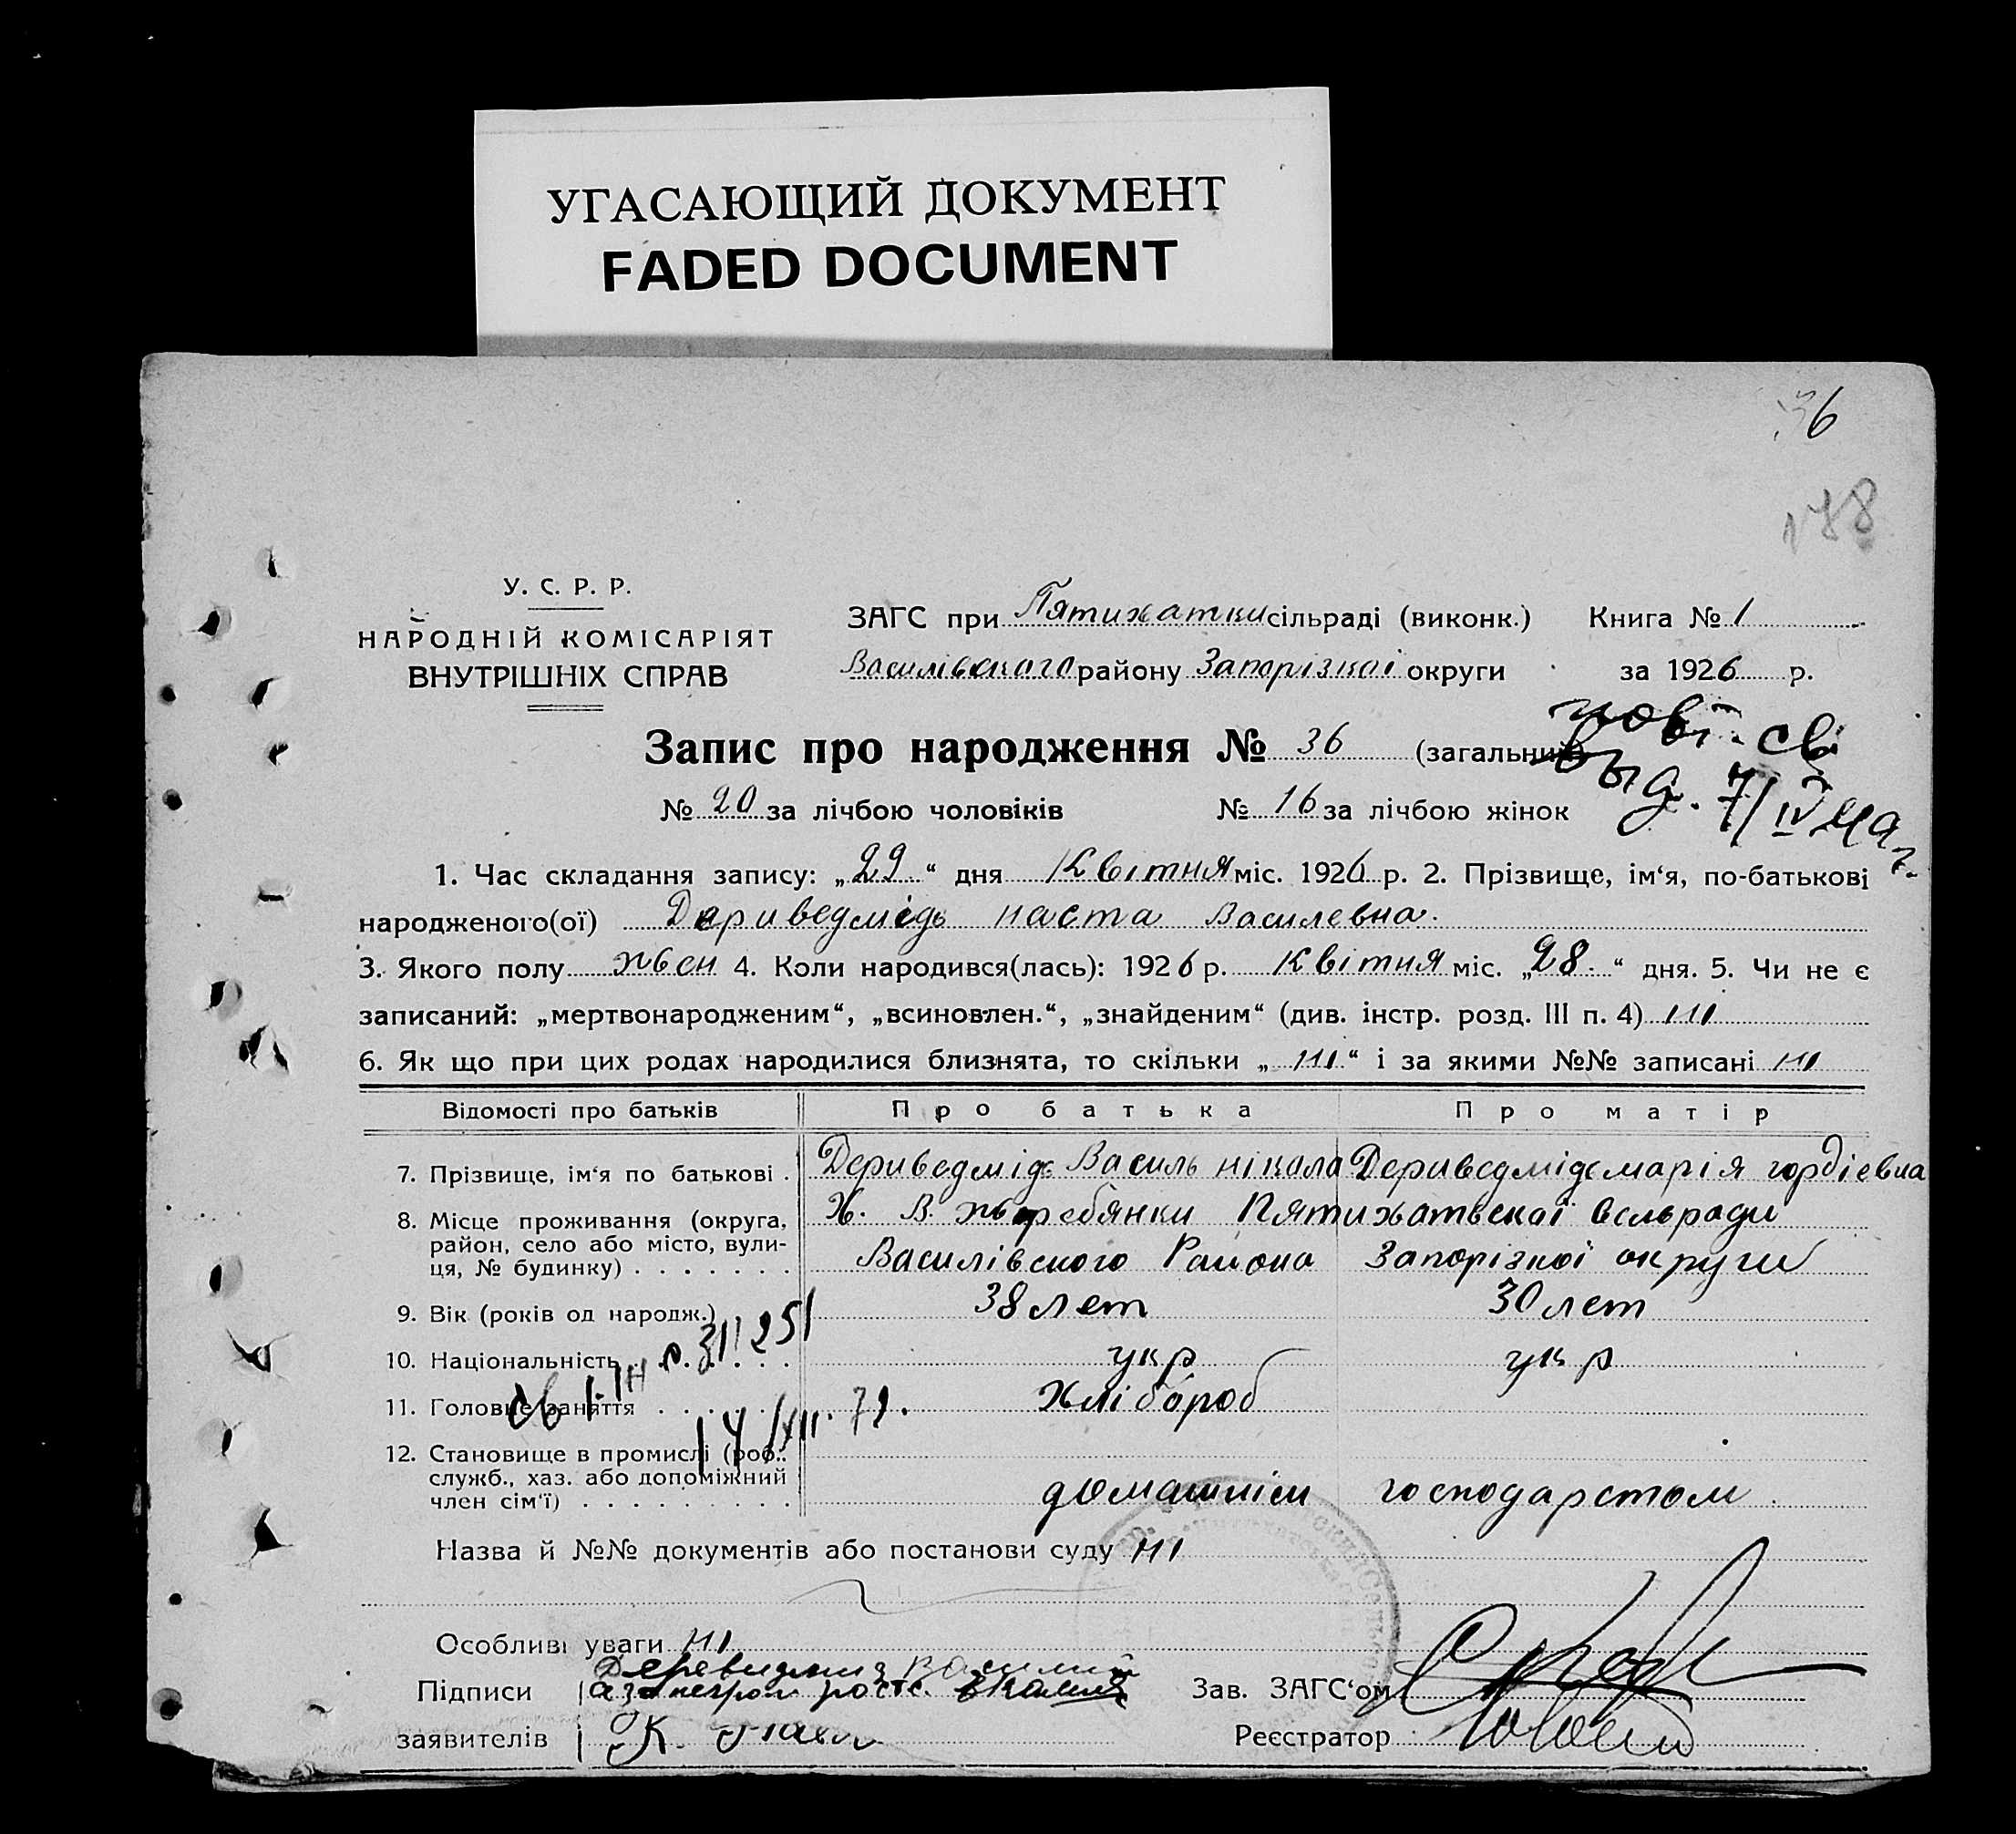 УГАСАЮЩИЙ ДОКУМЕНТ
FADED DOCUMENT
36
178
У. С. Р. Р.
НАРОДНІЙ КОМІСАРІЯТ
ВНУТРІШНІХ СПРАВ
ЗАГС при Пятихатки сільраді (виконк.) Книга № 1
Василівського району Запорізкоі округи за 1926 р.
Запис про народження № 36 (загальний)
пові. св
выд. 7/IV
№ 20 за лічбою чоловіків № 16 за лічбою жінок
1. Час складання запису: „29.“ дня Квітня міс. 1926 р. 2. Прізвище, ім‘я, по-батькові
народженого(ої) Дериведмідь наста Василевна.
3. Якого полу жвен 4. Коли народився(лась): 1926 р. квітня міс. „28.“ дня. 5. Чи не є
записаний: „мертвонародженим“, „всиновлен.“, „знайденим“ (див. інстр. розд. III п. 4) ні
6. Як що при цих родах народилися близнята, то скільки „ні“ і за якими №№ записані ні
Відомості про батьків Про батька Про матір
7. Прізвище, ім‘я по батькові . Дериведмідь Василь нікола Дериведмідь марія гордіевна
8. Місце проживання (округа, Х. В. жеребянки Пятихатвскаі велради
район, село або місто, вули-
ця, № будинку) . . . . . . . Василівского Района Запорізкоі округи
9. Вік (років од народж.) 38 лет 30 лет
10. Національність укр укр
11. Головне заняття хлібороб
12. Становище в промислі (роб.,
служб., хаз. або допоміжний
член сім‘ї) . . . . . . . . . домашнім господарстом
Назва й №№ документів або постанови суду ні
Особливі уваги ні
Підписи
заявителів
Зав. ЗАГС‘ом
Реєстратор